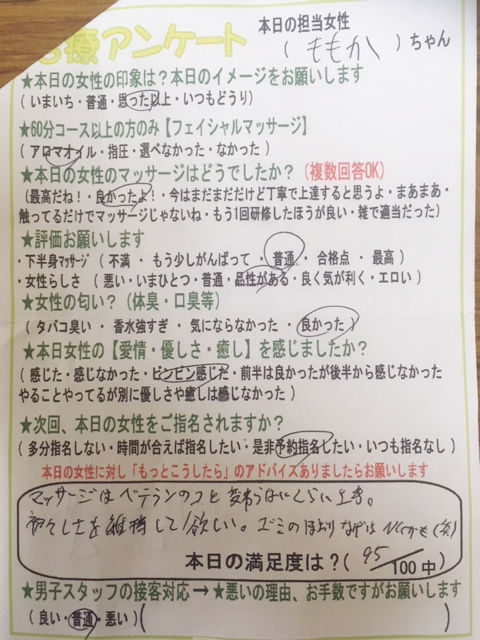 療アンケート
本日の担当女性
(ももか)ちゃん
★本日の女性の印象は？本日のイメージをお願いします
(いまいち・普通・思った以上・いつもどうり)
★60分コース以上の方のみ【フェイシャルマッサージ】
(アロマオイル・指圧・選べなかった・なかった)
★本日の女性のマッサージはどうでしたか？(複数回答OK)
(最高だね！・良かったよ！・今はまだまだだけど丁寧で上達すると思うよ・まあまあ・
触ってるだけでマッサージじゃないね・もう1回研修したほうが良い・雑で適当だった)
★評価お願いします
・下半身マッサージ (不満 ・ もう少しがんばって ・ 普通 ・ 合格点 ・ 最高)
・女性らしさ (悪い・いまひとつ・普通・品性がある・良く気が利く・エロい)
★女性の匂い？(体臭・口臭等)
(タバコ臭い ・ 香水強すぎ ・ 気にならなかった ・ 良かった)
★本日女性の【愛情・優しさ・癒し】を感じましたか？
(感じた・感じなかった・ビンビン感じた・前半は良かったが後半から感じなかった
やることやってるが別に優しさや癒しは感じなかった)
★次回、本日の女性をご指名されますか？
(多分指名しない・時間が合えば指名したい・是非予約指名したい・いつも指名なし)
本日の女性に対し「もっとこうしたら」のアドバイスありましたらお願いします
マッサージはベテランのコと変わらないくらい上手。
初々しさを維持して欲しい。
本日の満足度は？(95/100中)
★男子スタッフの接客対応→★悪いの理由、お手数ですがお願いします
(良い・普通・悪い)( )